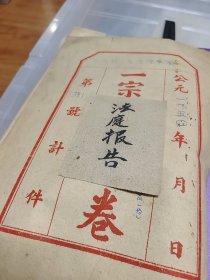 公元一九五 年 月 日
一宗 卷
法庭报告
第 號 計 件